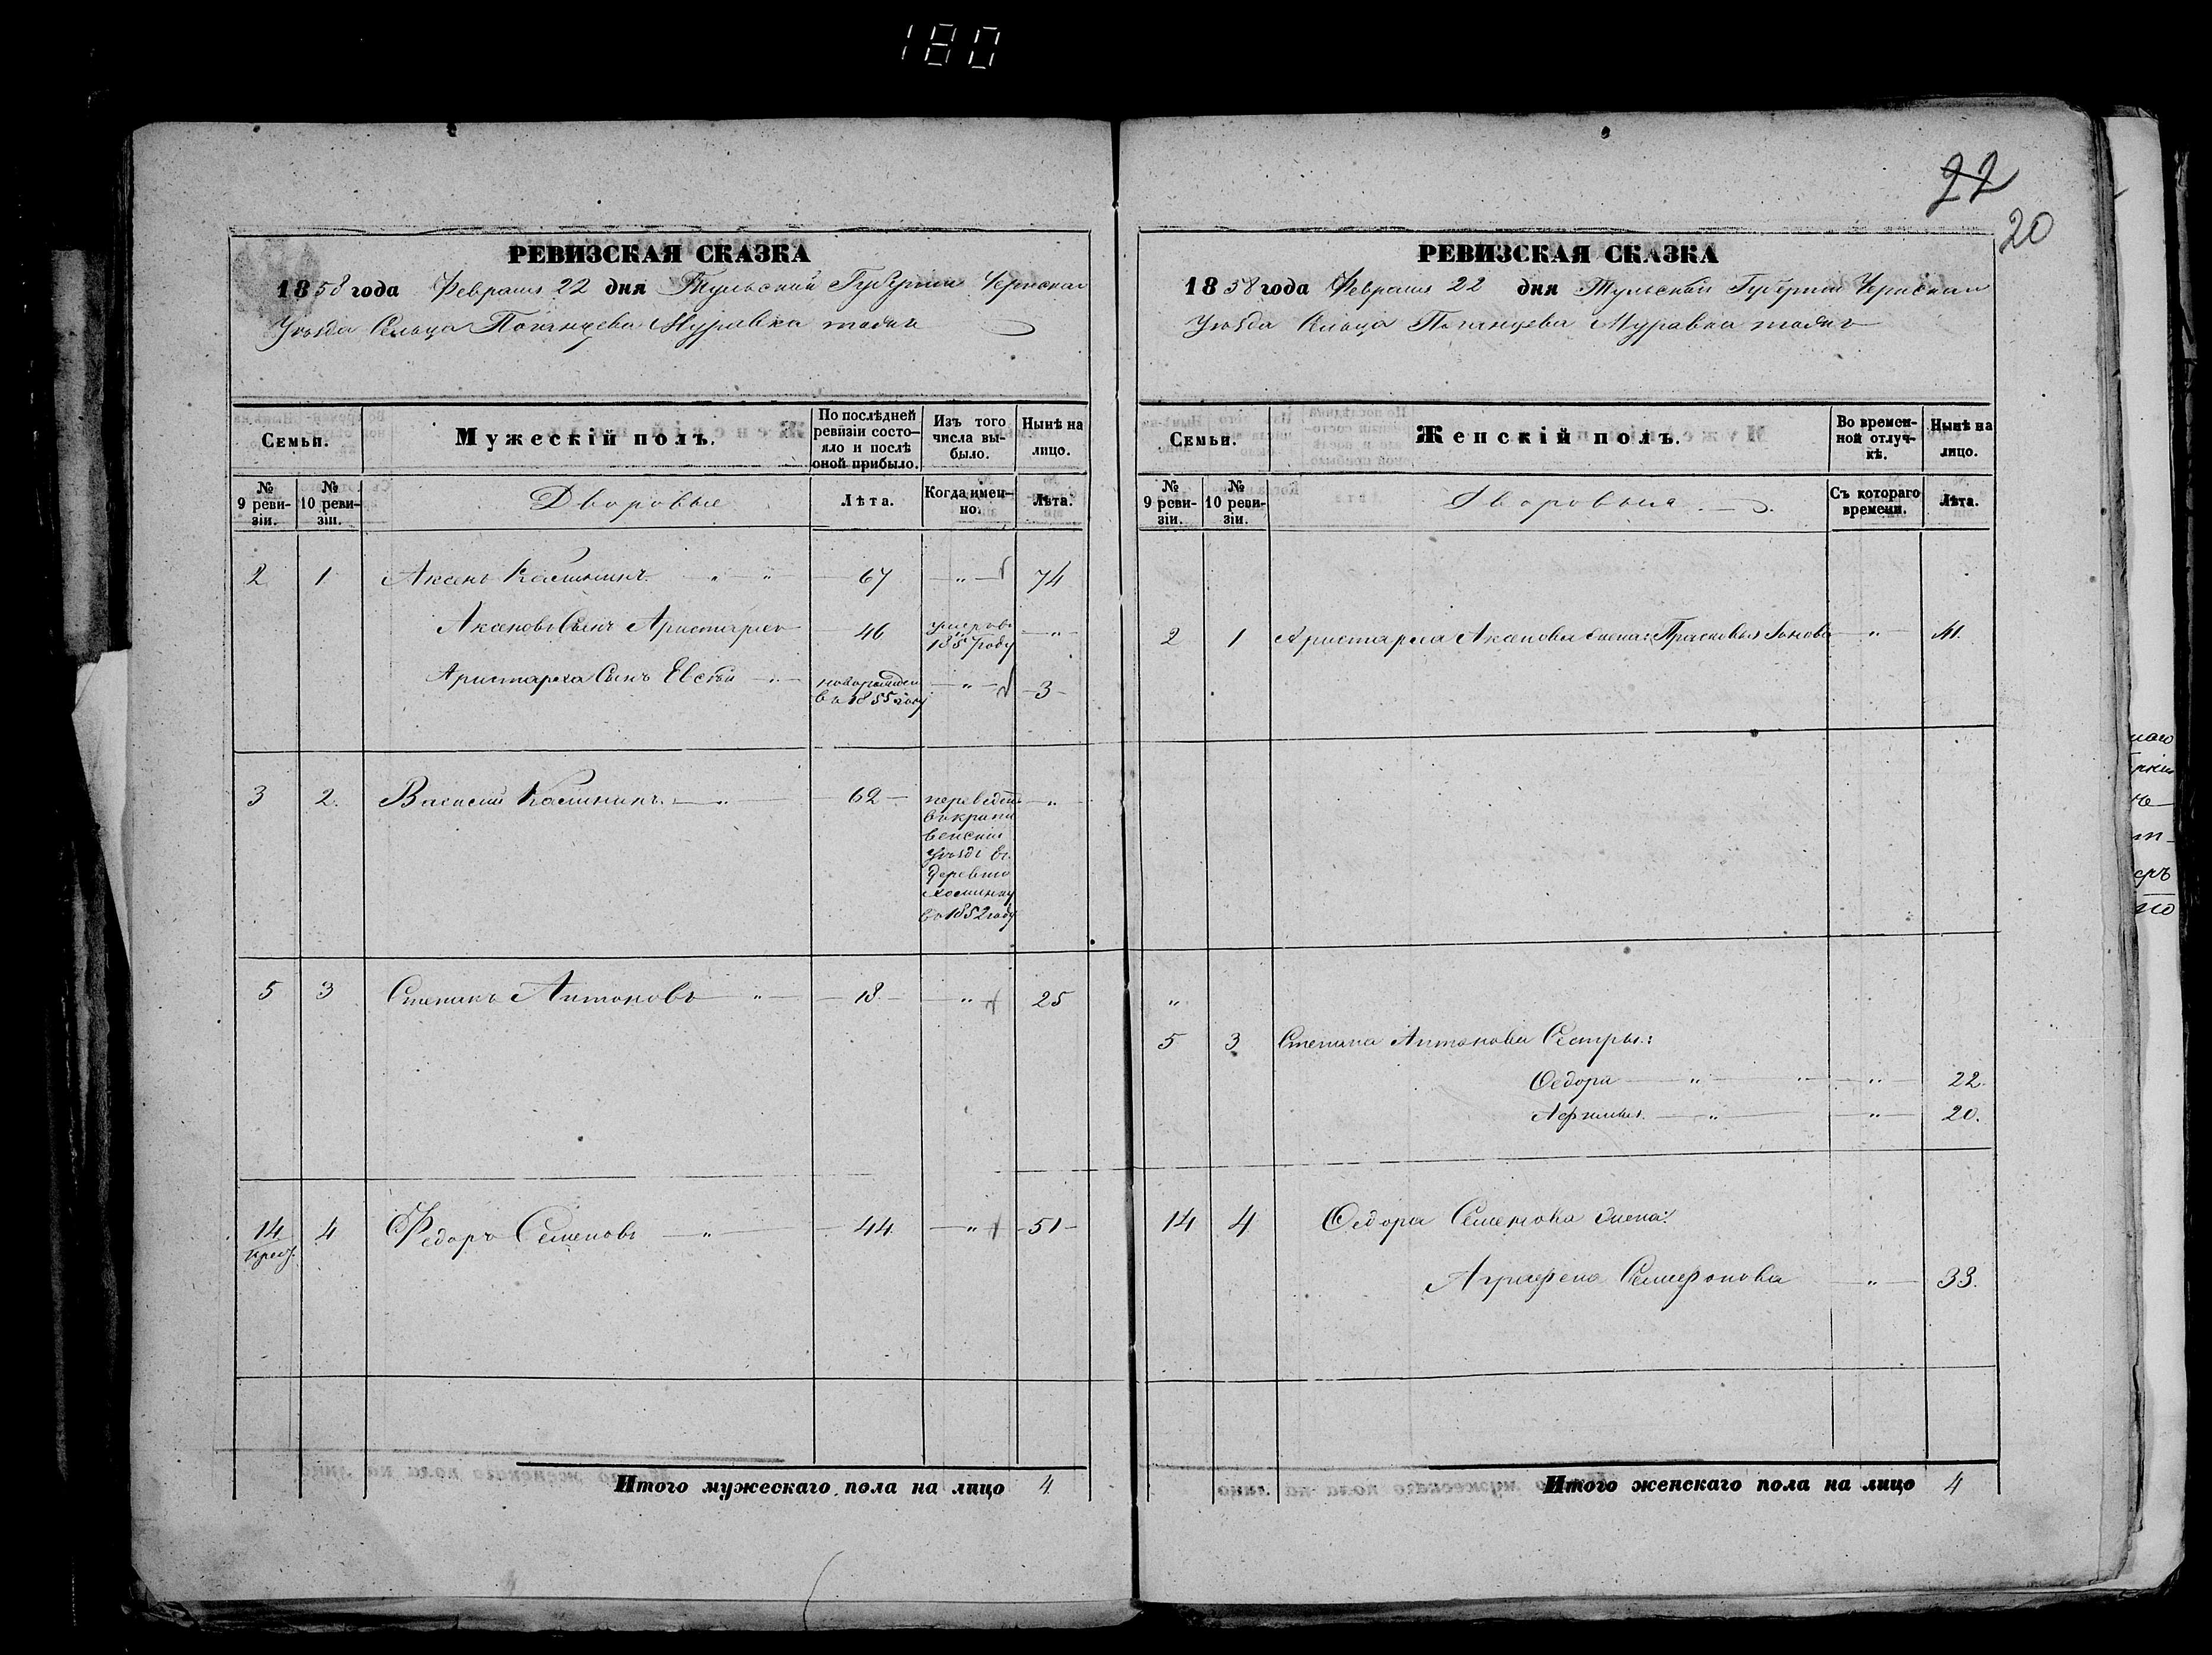 180
22
20
РЕВИЗСКАЯ СКАЗКА
1858 года Февраля 22 дня Тульской Губернии Чернскаго
Уѣзда Сельца Поганцева Муравка тожъ
Семьи.
Мужескій полъ.
По послѣдней ревизіи состояло и послѣ оной прибыло.
Изъ того числа выбыло.
Нынѣ на лицо.
№ 9 ревизіи.
№ 10 ревизіи.
Дворовые
Лѣта.
Когда именно.
Лѣта.
2 1 Аксенъ Калининъ " " 67 " 74
Аксеновъ Сынъ Аристархъ 46 умеръ въ 1857 году "
Аристарха Сынъ Евсѣй " новорожден въ 1855 году " 3
3 2. Василий Калининъ " 62 переведенъ "
въ крапи
венский
Уѣздъ въ
деревню
въ 1852 году
5 3 Степанъ Антоновъ " 18 " 25
14 4 Ѳедоръ Семеновъ " 44 " 51
крест.
Итого мужескаго пола на лицо 4
РЕВИЗСКАЯ СКАЗКА
1858 года Февраля 22 дня Тульской Губернии Чернскаго
Уѣзда Сельца Поганцева Муравка тожъ
Семьи.
Женскій полъ.
Во временной отлучкѣ.
Нынѣ на лицо.
№ 9 ревизіи.
№ 10 ревизіи.
Дворовыя
Съ котораго времени.
Лѣта.
2 1 Аристарха Аксенова жена: Прасковья Іонова " 41.
"
5 3 Степана Антонова Сестры:
Ѳедора " " " 22.
" " 20.
14 4 Ѳедора Семенова жена:
Аграфена " 33.
Итого женскаго пола на лицо 4